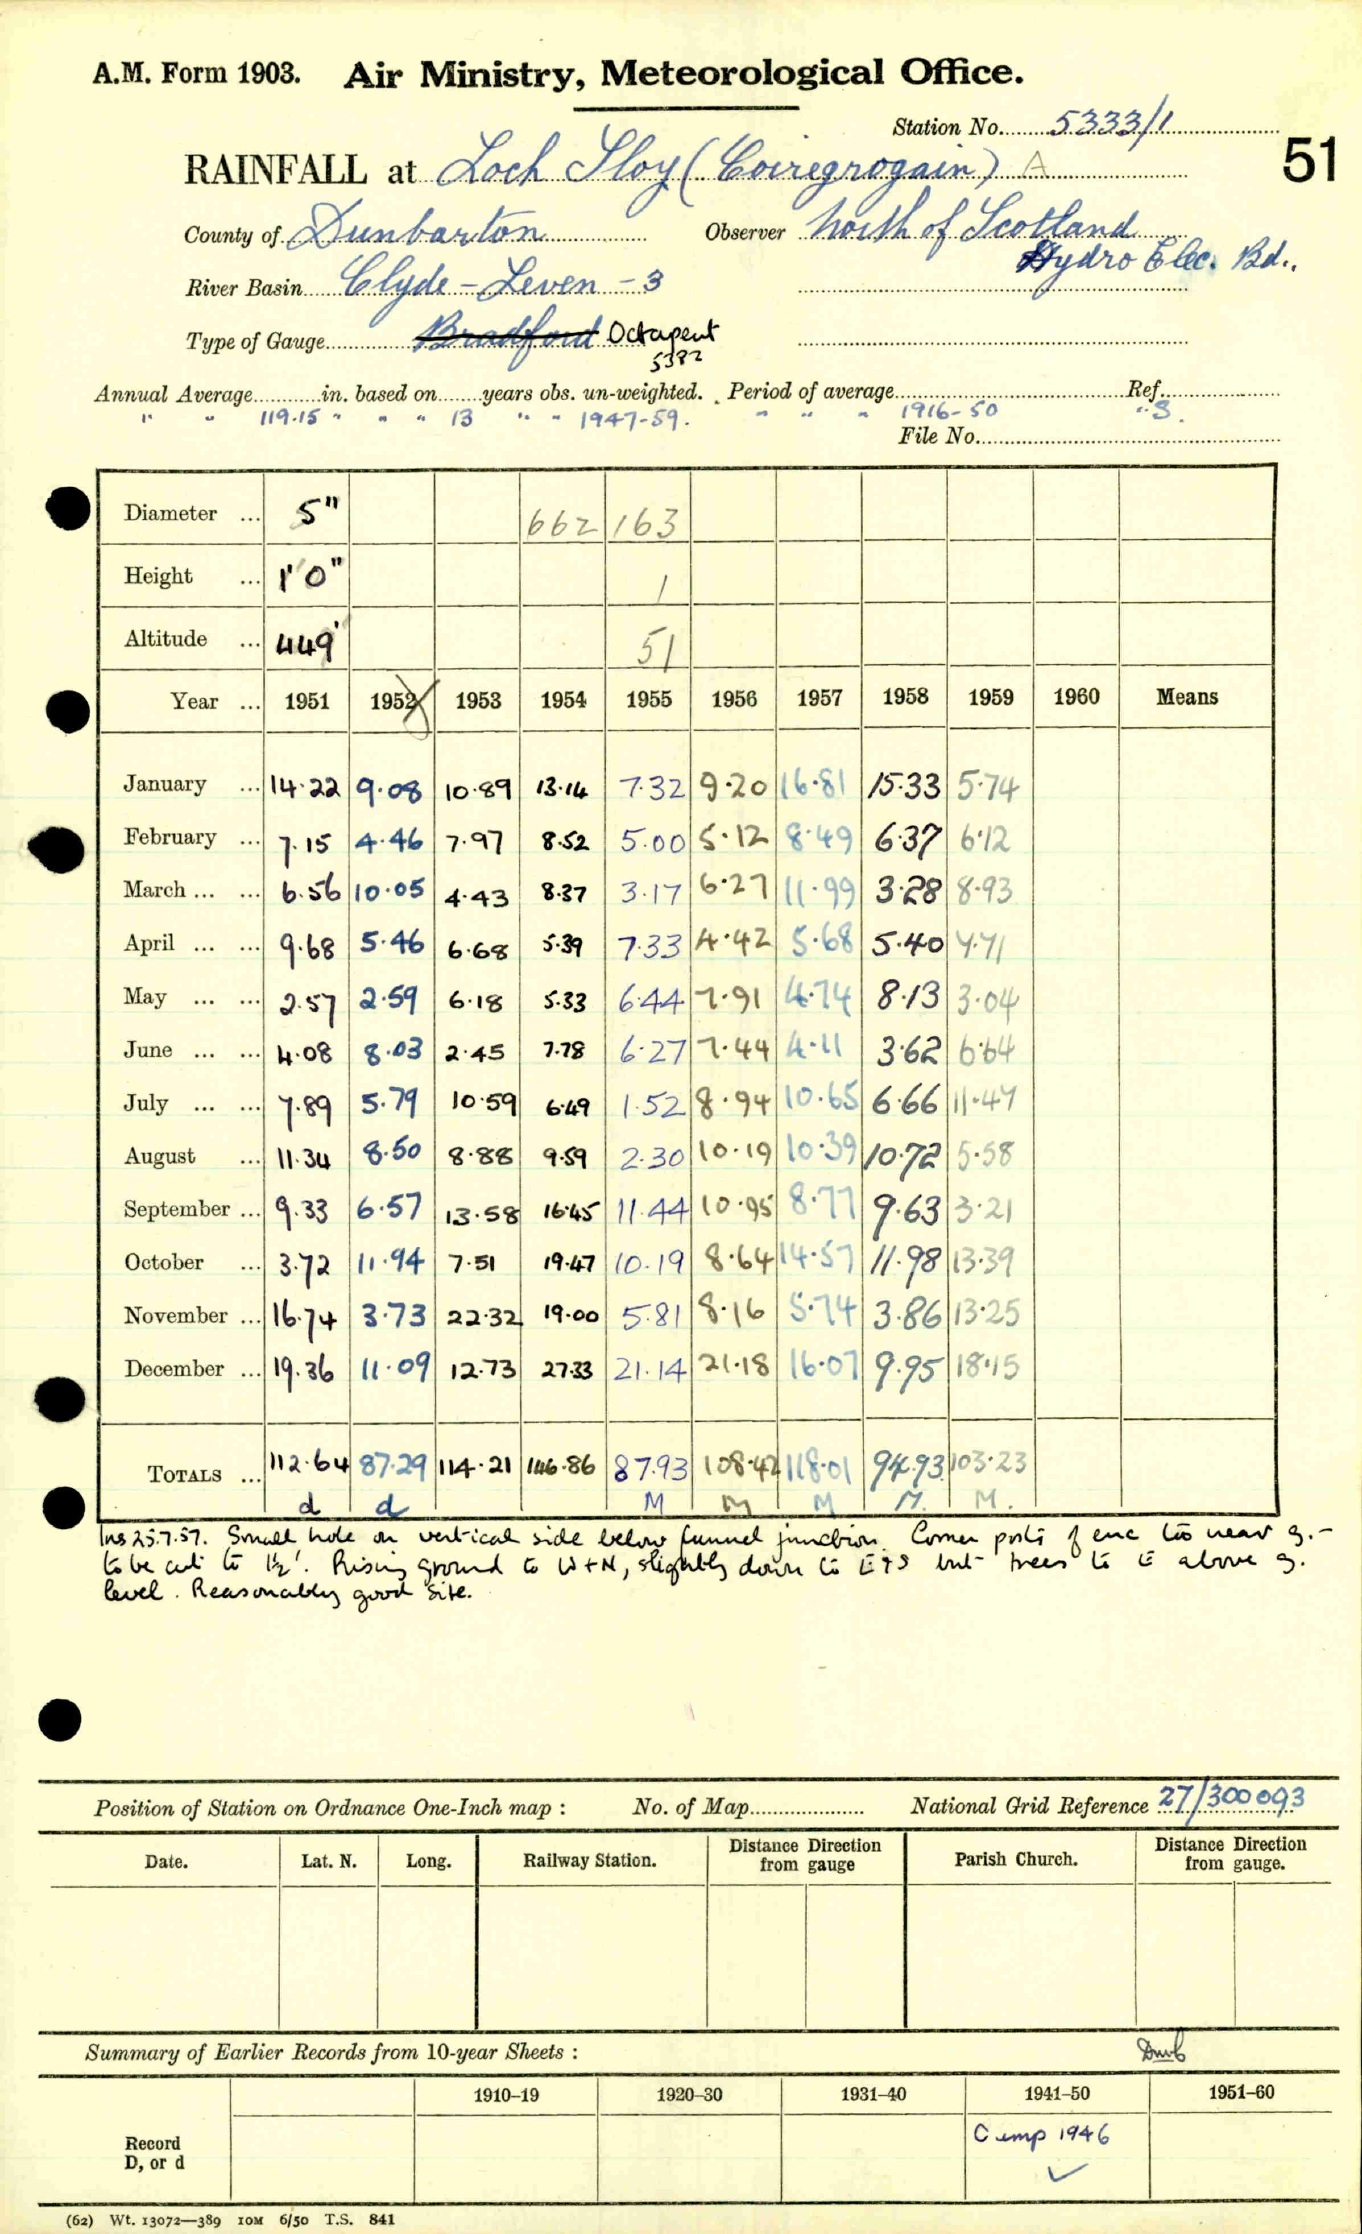 A.M. Form 1903. Air Ministry, Meteorological Office.
Station No. 5333/1
51
RAINFALL at Loch Sloy (Coiregrogain) A
County of Dunbarton Observer North of Scotland
Hydro Elec. Bd.,
River Basin Clyde - Leven - 3
Type of Gauge Bradford Octapent
5382
Annual Average in. based on years obs. un-weighted. Period of average Ref.
" " 119.15 " " " 13 " " 1947-59. " " " 1916-50 " S.
File No.
Diameter ... 5" 662 163
Height ... 1'0" 1
Altitude ... 449' 51
Year ... 1951 1952 1953 1954 1955 1956 1957 1958 1959 1960 Means
January ... 14.22 9.08 10.89 13.14 7.32 9.20 16.81 15.33 5.74
February ... 7.15 4.46 7.97 8.52 5.00 5.12 8.49 6.37 6.12
March ... ... 6.56 10.05 4.43 8.37 3.17 6.27 11.99 3.28 8.93
April ... ... 9.68 5.46 6.68 5.39 7.33 4.42 5.68 5.40 7.71
May ... ... 2.57 2.59 6.18 5.33 6.44 7.91 4.74 8.13 3.04
June ... ... 4.08 8.03 2.45 7.78 6.27 7.44 4.11 3.62 6.64
July ... ... 7.89 5.79 10.59 6.49 1.52 8.94 10.65 6.66 11.47
August ... 11.34 8.50 8.88 9.59 2.30 10.19 10.39 10.72 5.58
September ... 9.33 6.57 13.58 16.45 11.44 10.95 8.77 9.63 3.21
October ... 3.72 11.94 7.51 19.47 10.19 8.64 14.57 11.98 13.39
November ... 16.74 3.73 22.32 19.00 5.81 8.16 5.74 3.86 13.25
December ... 19.36 11.09 12.73 27.33 21.14 21.18 16.07 9.95 18.15
TOTALS ... 112.64 87.29 114.21 146.86 87.93 108.42 118.01 94.93 103.23
d d M M M M. M.
Ins 25.7.57. Small hole on vertical side below funnel junction. Corner posts of enc too near g. -
to be cut to 1½'. Rising ground to W + N, slightly down to E + S but trees to E above g.
level. Reasonably good site.
Position of Station on Ordnance One-Inch map : No. of Map National Grid Reference 27/300093
Date. Lat. N. Long. Railway Station. Distance from gauge Direction Parish Church. Distance from gauge. Direction
Summary of Earlier Records from 10-year Sheets : Dumb
1910-19 1920-30 1931-40 1941-50 1951-60
Record
D, or d
Cemp 1946
(62) Wt. 13072—389 10M 6/50 T.S. 841